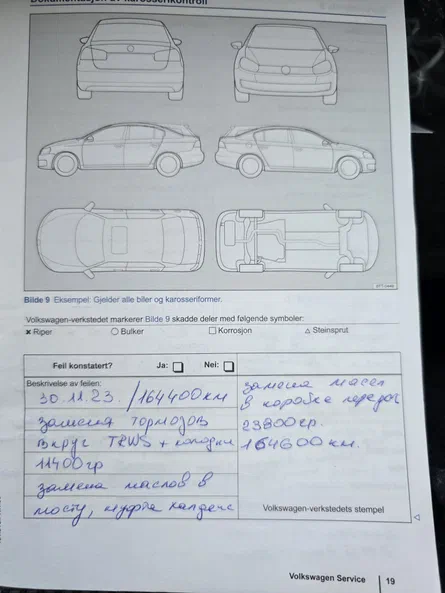 Dokumentasjon av karosserikontroll
Bilde 9 Eksempel: Gjelder alle biler og karosseriformer.
Volkswagen-verkstedet markerer Bilde 9 skadde deler med følgende symboler:
× Riper ○ Bulker □ Korrosjon △ Steinsprut
Feil konstatert? Ja: Nei:
Beskrivelse av feilen:
30.11.23. / 164400км
замена тормозов
вкруг TRWS + колодки
11400гр
замена маслов в
мосту, муфта халдекс
замена масел
в коробке передач
23800гр.
164600 км.
Volkswagen-verkstedets stempel
Volkswagen Service 19